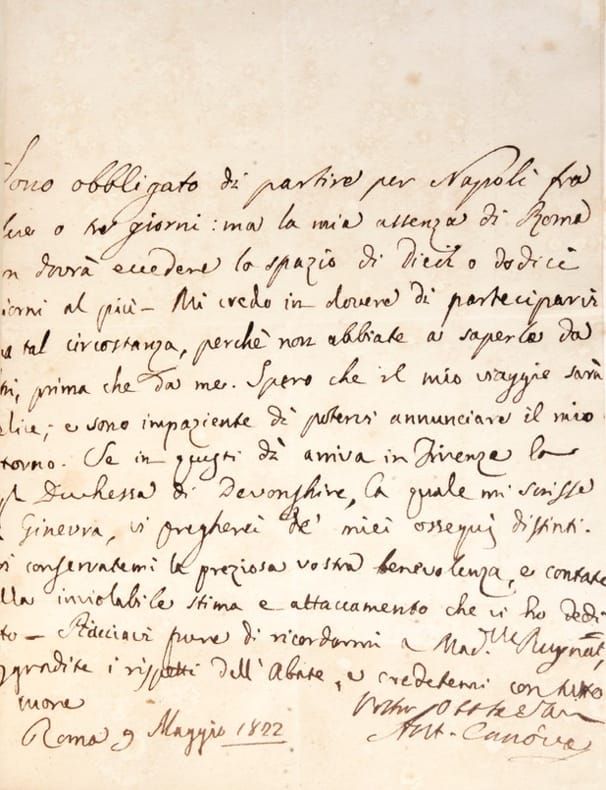 Sono obbligato di partire per Napoli fra
due o tre giorni: ma la mia assenza di Roma
n dovrà eccedere lo spazio di dieci o dodici
iorni al più – Mi credo in dovere di parteciparvi
a tal circostanza, perchè non abbiate a saperla da
tri, prima che da me. Spero che il mio viaggio sarà
elice; e sono impaziente di potervi annunciare il mio
torno. Se in questi dì arriva in Firenze la
Duchessa di Devonshire, la quale mi scrisse
Ginevra, vi pregherei de' miei ossequj distinti.
conservatemi la preziosa vostra benevolenza, e contate
lla inviolabile stima e attaccamento che vi ho dedi
to – Piacciavi pure di ricordarmi a Mad.lle
ggradite i rispetti dell'Abate, e credetemi con tutto
more
Roma 9 Maggio 1822
Ant. Canova